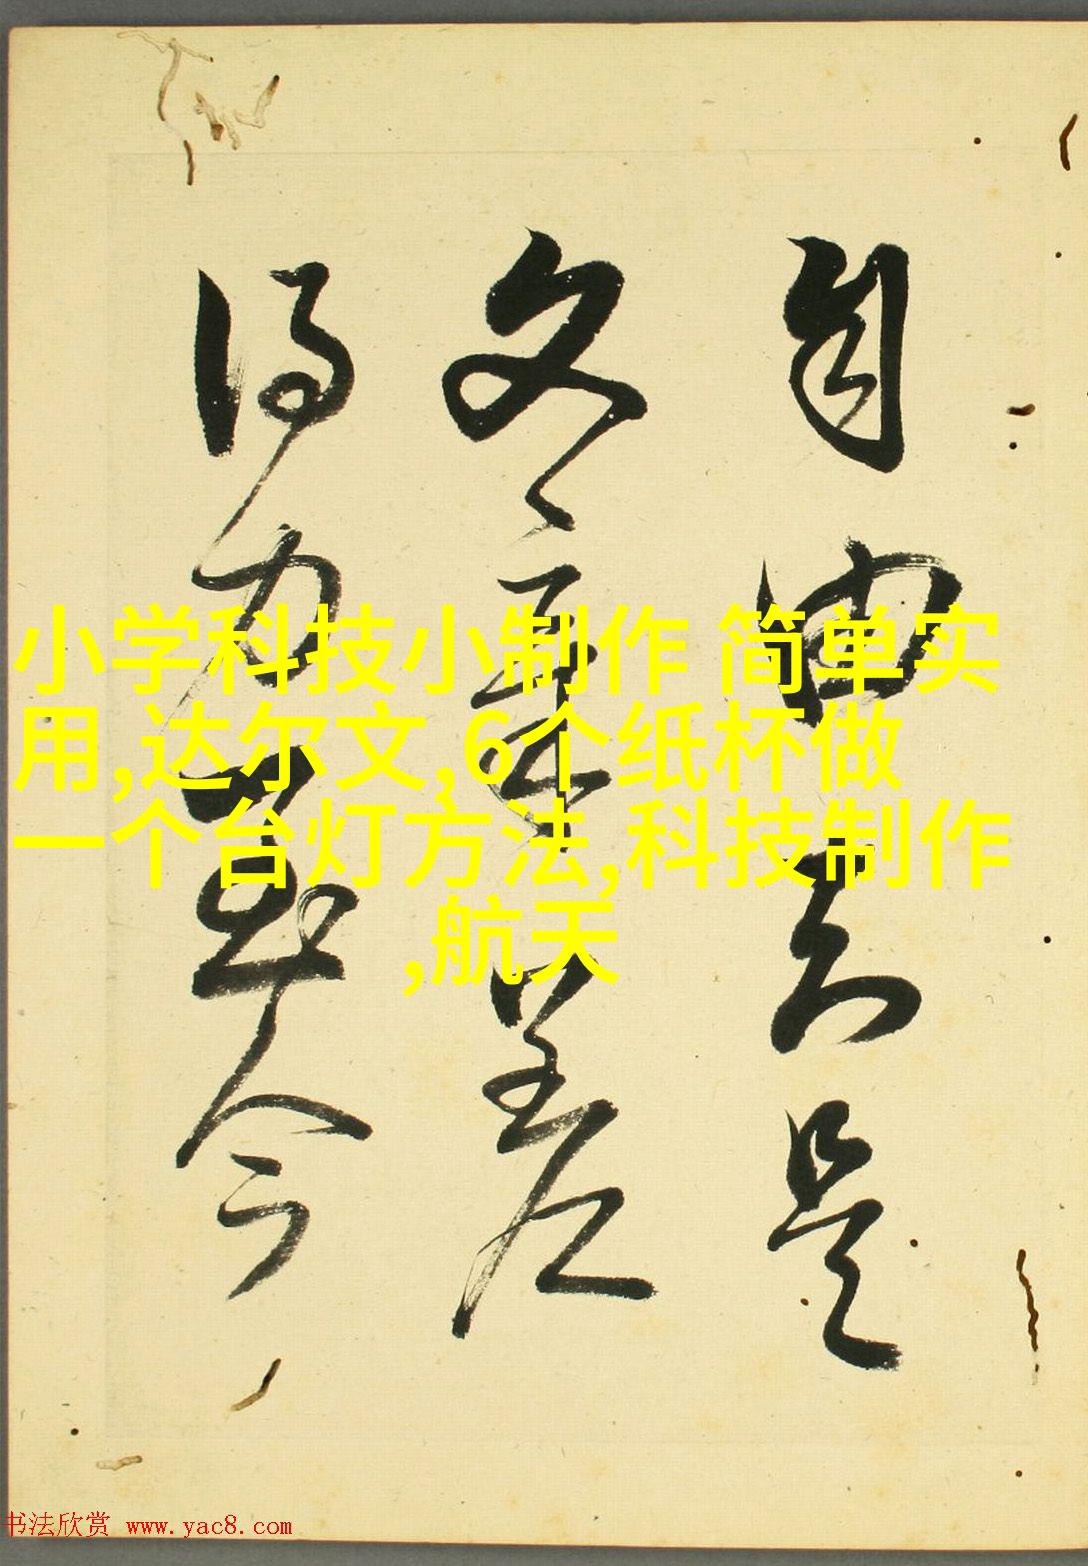 自由是
文章差
得力今
小学科技小制作 简单实
用,达尔文,6个纸杯做
一个台灯方法,科技制作
,航天
书法欣赏 www.yac8.com